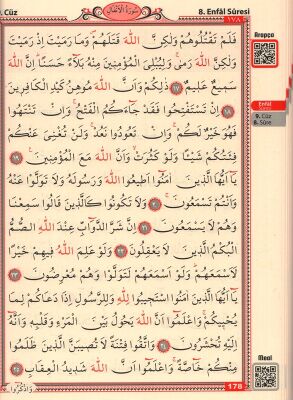 ٩. Cüz
سورة الأنفال
8. Enfâl Sûresi
١٧٨
فَلَمْ تَقْتُلُوهُمْ وَلٰكِنَّ اللّٰهَ قَتَلَهُمْ وَمَا رَمَيْتَ اِذْ رَمَيْتَ
وَلٰكِنَّ اللّٰهَ رَمٰى وَلِيُبْلِيَ الْمُؤْمِنِينَ مِنْهُ بَلَاءً حَسَنًا اِنَّ اللّٰهَ
سَمِيعٌ عَلِيمٌ ١٧ ذٰلِكُمْ وَاَنَّ اللّٰهَ مُوهِنُ كَيْدِ الْكَافِرِينَ
١٨ اِنْ تَسْتَفْتِحُوا فَقَدْ جَاءَكُمُ الْفَتْحُ وَاِنْ تَنْتَهُوا
فَهُوَ خَيْرٌ لَكُمْ وَاِنْ تَعُودُوا نَعُدْ وَلَنْ تُغْنِيَ عَنْكُمْ
فِئَتُكُمْ شَيْئًا وَلَوْ كَثُرَتْ وَاَنَّ اللّٰهَ مَعَ الْمُؤْمِنِينَ ١٩
يَا اَيُّهَا الَّذِينَ اٰمَنُوا اَطِيعُوا اللّٰهَ وَرَسُولَهُ وَلَا تَوَلَّوْا عَنْهُ
وَاَنْتُمْ تَسْمَعُونَ ٢٠ وَلَا تَكُونُوا كَالَّذِينَ قَالُوا سَمِعْنَا
وَهُمْ لَا يَسْمَعُونَ ٢١ اِنَّ شَرَّ الدَّوَابِّ عِنْدَ اللّٰهِ الصُّمُّ
الْبُكْمُ الَّذِينَ لَا يَعْقِلُونَ ٢٢ وَلَوْ عَلِمَ اللّٰهُ فِيهِمْ خَيْرًا
لَاَسْمَعَهُمْ وَلَوْ اَسْمَعَهُمْ لَتَوَلَّوْا وَهُمْ مُعْرِضُونَ ٢٣
يَا اَيُّهَا الَّذِينَ اٰمَنُوا اسْتَجِيبُوا لِلّٰهِ وَلِلرَّسُولِ اِذَا دَعَاكُمْ لِمَا
يُحْيِيكُمْ وَاعْلَمُوا اَنَّ اللّٰهَ يَحُولُ بَيْنَ الْمَرْءِ وَقَلْبِهِ وَاَنَّهُ
اِلَيْهِ تُحْشَرُونَ ٢٤ وَاتَّقُوا فِتْنَةً لَا تُصِيبَنَّ الَّذِينَ ظَلَمُوا
مِنْكُمْ خَاصَّةً وَاعْلَمُوا اَنَّ اللّٰهَ شَدِيدُ الْعِقَابِ ٢٥
وَاذْكُرُوا
178
Arapça
Enfâl
9. Cüz
8. Sûre
Meal